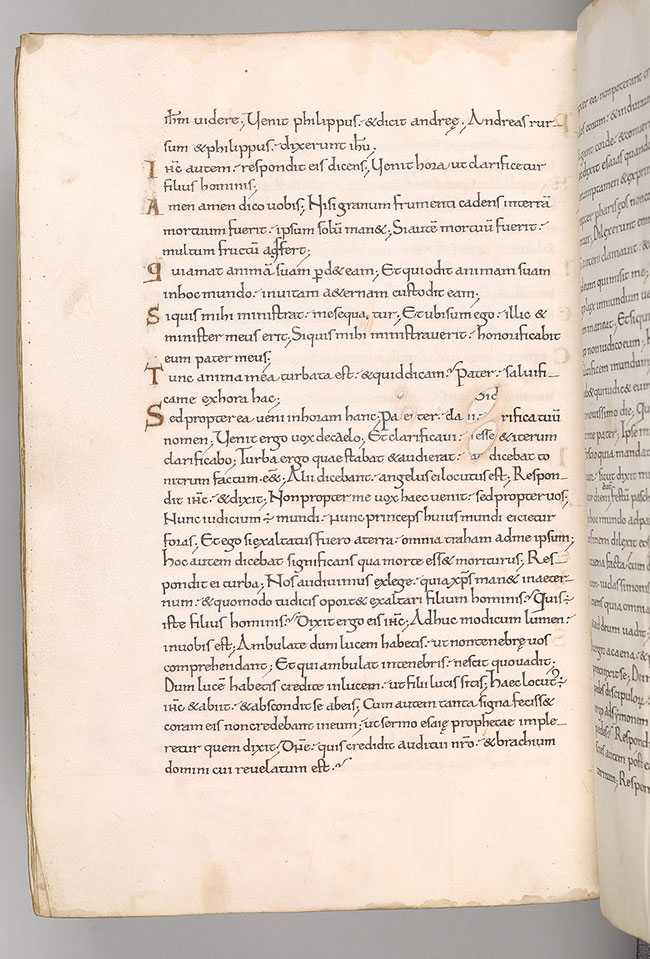 ihm videre; Venit philippus· & dicit andreę; Andreas rur-
sum & philippus· dixerunt ihu;
Ihc autem· respondit eis dicens; Venit hora ut clarificetur
filius hominis;
Amen amen dico vobis; Nisi granum frumenti cadens interrā
mortuum fuerit· ipsum solū man&; Si autē mortuū fuerit·
multum fructū affert;
Qui amat animā suam p̱d& eam; Et qui odit animam suam
in hoc mundo· in vitam a&ernam custodit eam;
Siquis mihi ministrat· me sequatur; Et ubi sum ego· illic &
minister meus erit; Siquis mihi ministraverit· honorificabit
eum pater meus;
Tunc anima mea turbata est· & quid dicam? Pater· salvifi-
ca me ex hora hac;
Sed propterea veni in horam hanc; Pater· da rifica tuū
nomen; Venit ergo vox de cælo; Et clarificavi· & iterum
clarificabo; Turba ergo quae stabat & audierat· dicebat to
nitrum factum ee&; Alii dicebant· angelus ei locutus est; Respon-
dit ihc· & dixit; Non propter me vox haec venit· sed propter vos;
Nunc iudicium ÷ mundi· nunc princeps huius mundi eicietur
foras; Et ego si exaltatus fuero a terra· omnia traham ad me ipsum;
hoc autem dicebat significans qua morte ess& moriturus; Res-
pondit ei turba; Nos audivimus ex lege· quia xps man& in aeter-
num· & quomodo tu dicis oport& exaltari filium hominis? Quis ÷
iste filius hominis? Dixit ergo eis ihc; Adhuc modicum lumen·
in vobis est; Ambulate dum lucem habetis· ut non tenebrę vos
comprehendant; Et qui ambulat in tenebris· nescit quo vadit;
Dum lucē habetis credite in lucem· ut filii lucis sitis; Haec locut'
ihc & abiit· & abscondit se ab eis; Cum autem tanta signa feciss&
coram eis non credebant in eum; ut sermo esaię prophetae imple-
retur quem dixit; Dñe· quis credidit auditui nro· & brachium
domini cui revelatum est?